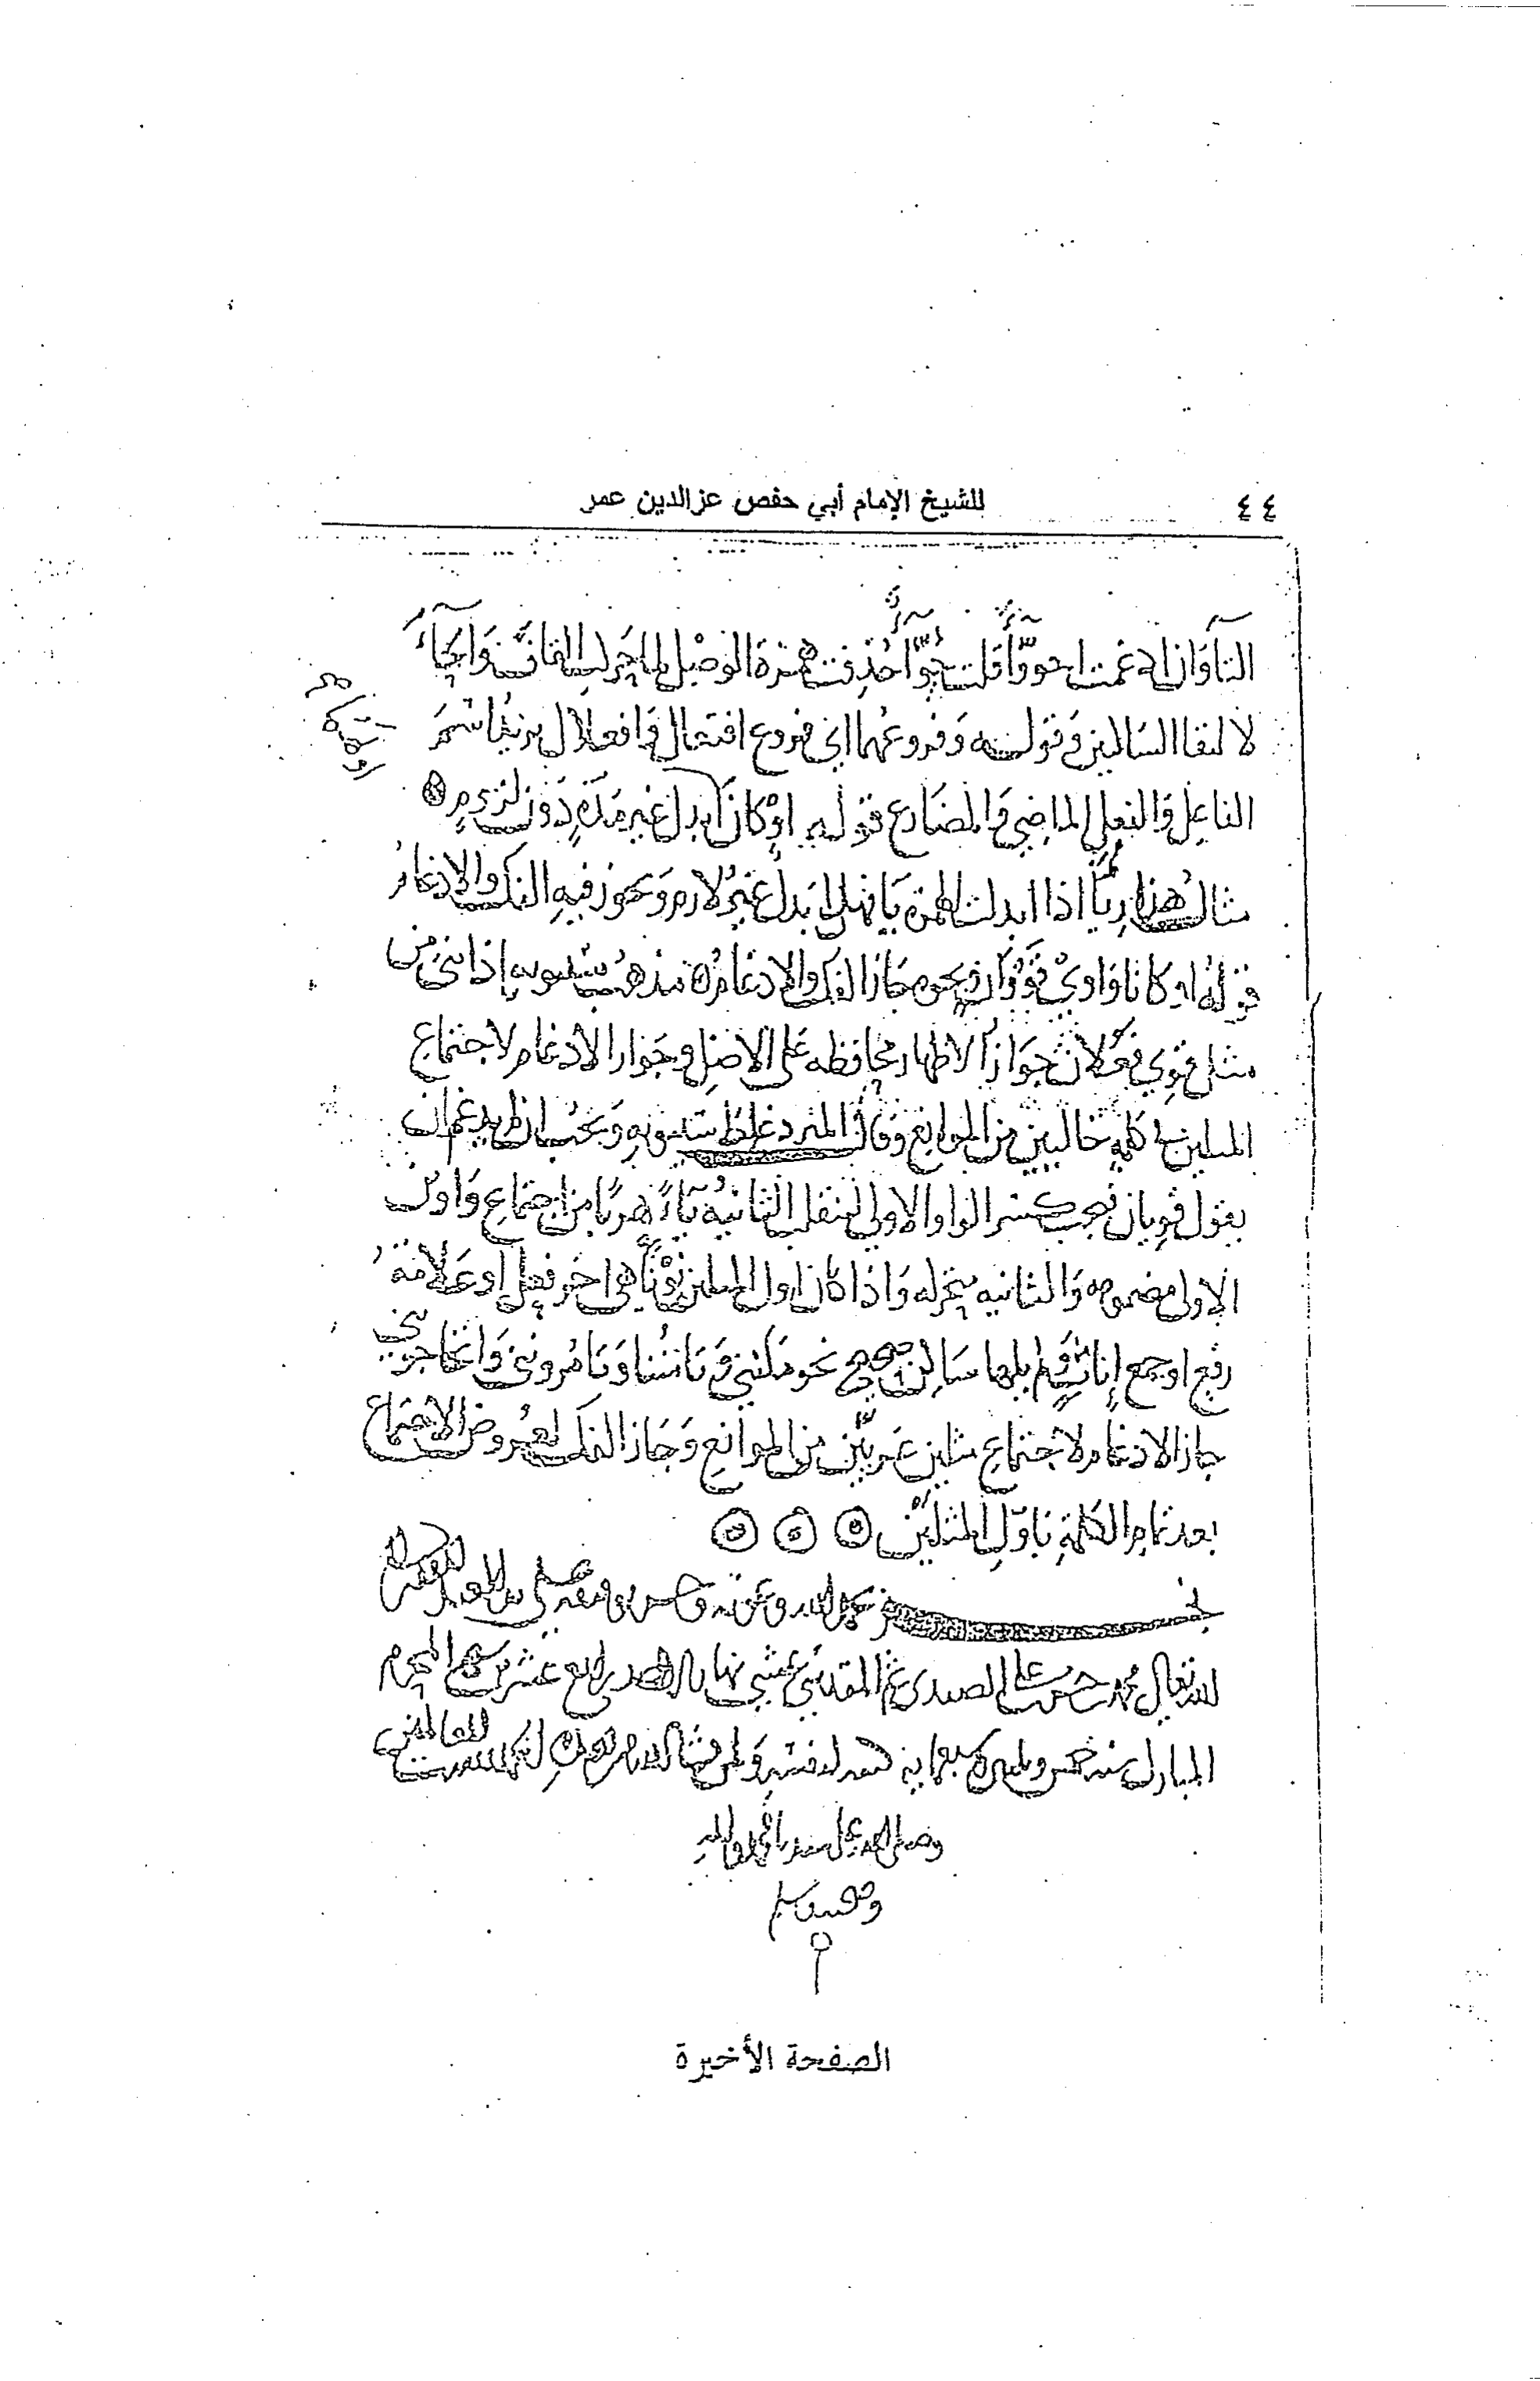 ٤٤
للشيخ الإمام أبي حفص عزالدين عمر
التا وَان ادغمت احووّا قلت حُوَّا حُذِفت همزة الوصل لما تحركت الفاف وَالحاءُ
لالتقا الساكنين وَقوله وَفروعهما اي فروع افتعال وَافعلال يريدُ اسمَ
الفاعِل وَالفعل الماضِي وَالمضَارع قوله اوْ كانَ ابدل غير مَدّه دَون لزومٍ
مثالُ هذا رِيّا اذا ابدلت الهمزة يَا فهذا بَدل غيرُ لازم وَيجوز فيهِ الفك والادغامُ
قولهُ اوْ كانا وَاوي قَوُوَان وَنحوه جَاز الفك والادغامُ مَذهبُ سيبويه إذا بنى من
مثل قوِي فعُلان جَوَاز الاظهار محافظه عَلى الاصْل وجَواز الادْغام لاجتماع
المثلين في كلمه خاليين من الموانع وَقالَ المبرد غلط سيبويهِ وَيجب ان لم يدغم ان
يقول قوِيان فيجب كسر الواو الاولى لتنقلب الثانيةُ يَاءً هربًا من اجتماع وَاوين
الاولى مضمومه وَالثانيه متحركه وَاذا كان اول المثلين نونًا هي اخر فعل او علامةُ
رفع اوجمع إناثٍ وَلم يلها سَاكن صحيح نحو مكنني وَتامننا وَتامرونني وَاتحاجونني
جاز الادغام لاجتماعِ مثلين عَريّيْن من الموانع وَجَاز الفك لعُروض الاجتماع
بعد تمام الكلمةِ باوّلِ المثليْن
نجز بحمد الله وعونه وحسن توفيقه على يد العبد الفقير الى
الله تعالى محمد بن حسن بن علي الصيدي ثم المقدسي عشي نهار الاحد رابع عشر شهر الله المحرم
المبارك سنه خمس وسبعمايه لنفسه وَلمن شا الله من بعده وَالحمد لله رب العالمين
وصلى الله على سيدنا محمد واله
وصحبه وسلم
الصفحة الأخيرة